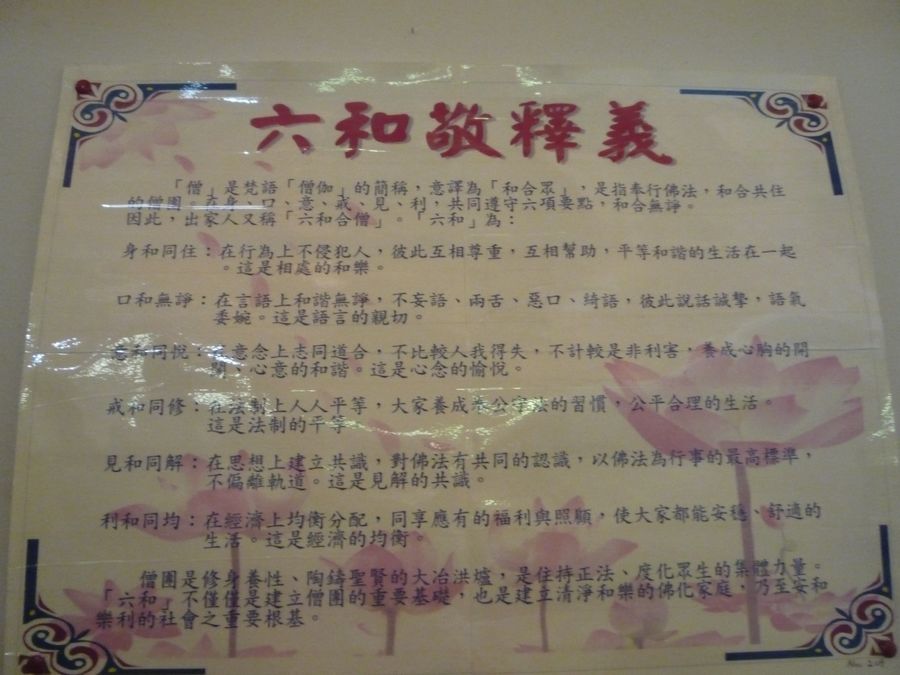 六和敬釋義
「僧」是梵語「僧伽」的簡稱，意譯為「和合眾」，是指奉行佛法，和合共住
的僧團。在身、口、意、戒、見、利，共同遵守六項要點，和合無諍。
因此，出家人又稱「六和合僧」。「六和」為：
身和同住：在行為上不侵犯人，彼此互相尊重，互相幫助，平等和諧的生活在一起
。這是相處的和樂。
口和無諍：在言語上和諧無諍，不妄語、兩舌、惡口、綺語，彼此說話誠摯，語氣
委婉。這是語言的親切。
意和同悅：在意念上志同道合，不比較人我得失，不計較是非利害，養成心胸的開
闊、心意的和諧。這是心念的愉悅。
戒和同修：在法制上人人平等，大家養成奉公守法的習慣，公平合理的生活。
這是法制的平等
見和同解：在思想上建立共識，對佛法有共同的認識，以佛法為行事的最高標準，
不偏離軌道。這是見解的共識。
利和同均：在經濟上均衡分配，同享應有的福利與照顧，使大家都能安穩、舒適的
生活。這是經濟的均衡。
僧團是修身養性、陶鑄聖賢的大冶洪爐，是住持正法、度化眾生的集體力量。
「六和」不僅僅是建立僧團的重要基礎，也是建立清淨和樂的佛化家庭，乃至安和
樂利的社會之重要根基。